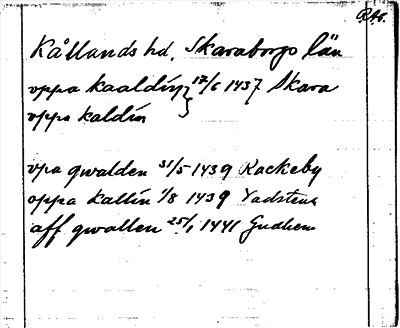 R.A.
Kållands hd, Skaraborgs län
oppa kaaldin } 17/6 1437 Skara
oppa kaldin
vpa qwalden 31/5 1439 Rackeby
oppa kallin 1/8 1439 Vadstena
aff qwallen 25/1 1441 Gudhem